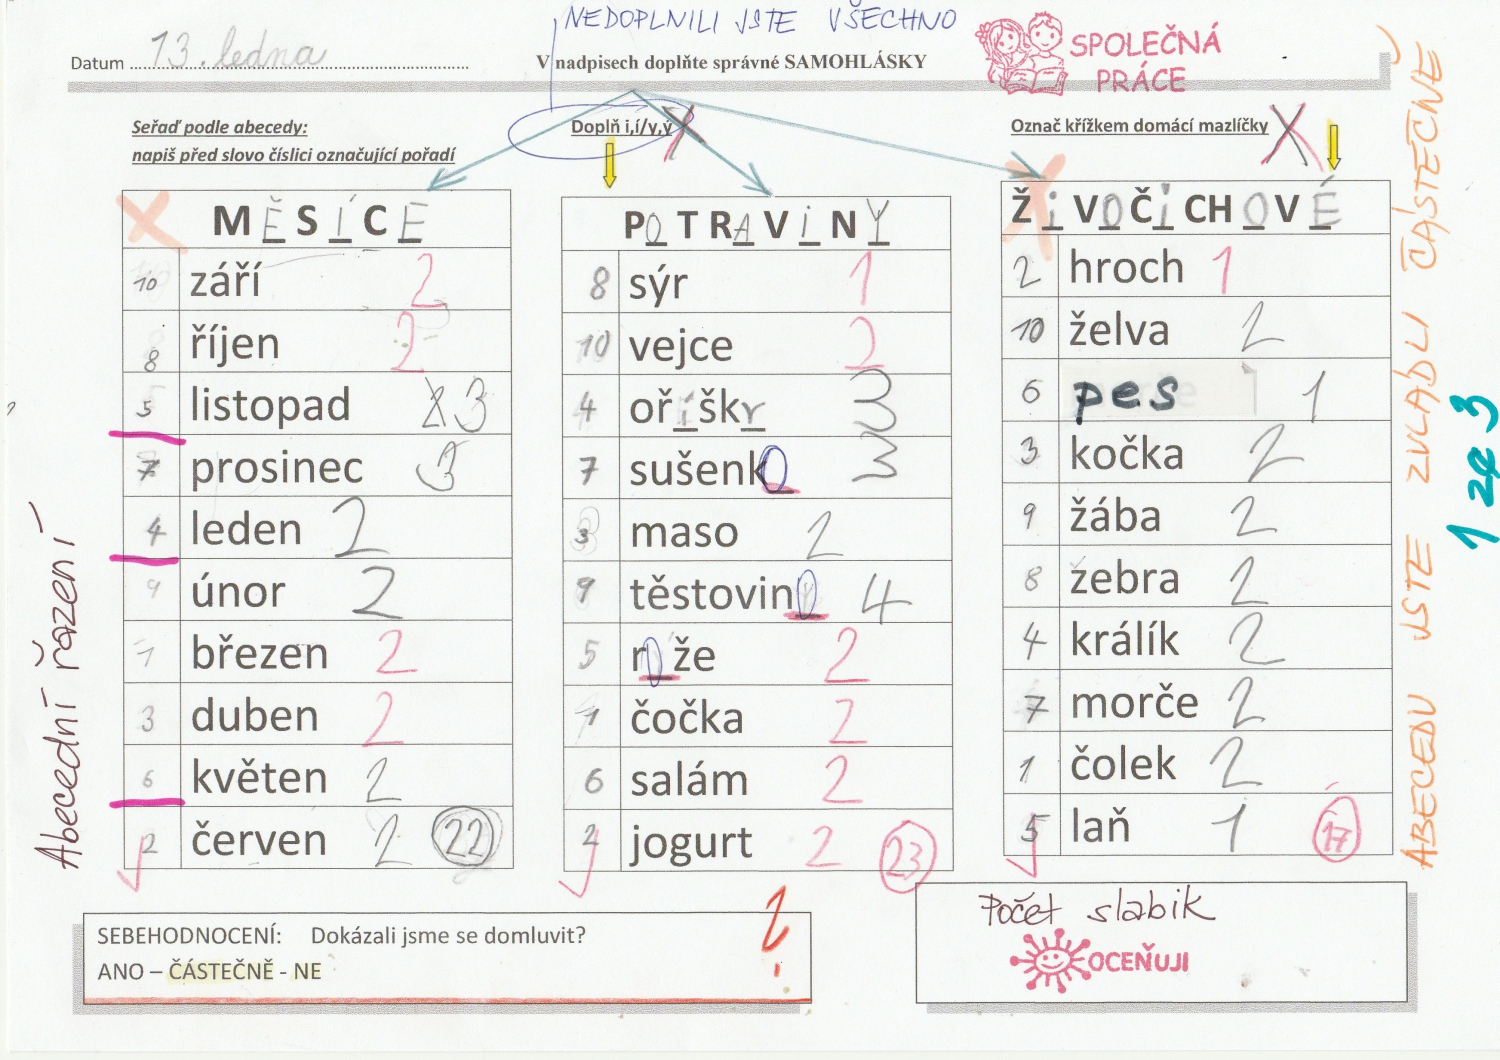 NEDOPLNILI JSTE VŠECHNO
Datum 13. ledna
V nadpisech doplňte správné SAMOHLÁSKY
SPOLEČNÁ
PRÁCE
Seřaď podle abecedy:
napiš před slovo číslici označující pořadí
Doplň i,í/y,ý
Označ křížkem domácí mazlíčky
MĚSÍCE
10 září 2
8 říjen 2
5 listopad 3
7 prosinec 3
4 leden 2
9 únor 2
1 březen 2
3 duben 2
6 květen 2
2 červen 2 22
POTRAViNY
8 sýr 1
10 vejce 2
4 oříšky 3
7 sušenk 3
3 maso 2
9 těstovin 4
5 r že 2
1 čočka 2
6 salám 2
2 jogurt 2 23
ŽiVOČiCHOVÉ
2 hroch 1
10 želva 2
6 pes 1
3 kočka 2
9 žába 2
8 zebra 2
4 králík 2
7 morče 2
1 čolek 2
5 laň 1 17
Abecední řazení
ABECEDU JSTE ZVLÁDLI ČÁSTEČNĚ
1 ze 3
SEBEHODNOCENÍ: Dokázali jsme se domluvit?
ANO – ČÁSTEČNĚ - NE
Počet slabik
OCEŇUJI